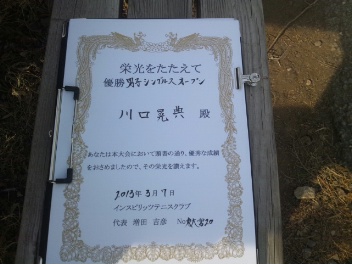 栄光をたたえて
優勝 男子シングルスオープン
川口晃典 殿
あなたは本大会において頭書の通り、優秀な成績
をおさめましたので、その栄光を讃えます。
2013年3月9日
インスピリッツテニスクラブ
代表 増田 吉彦 No